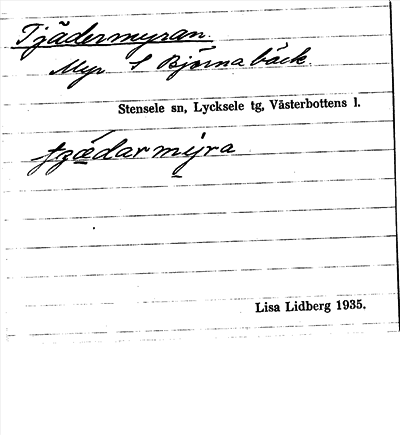 Tjädermyran.
Myr S Björnabäck.
Stensele sn, Lycksele tg, Västerbottens l.
tjädarmýra
Lisa Lidberg 1935.